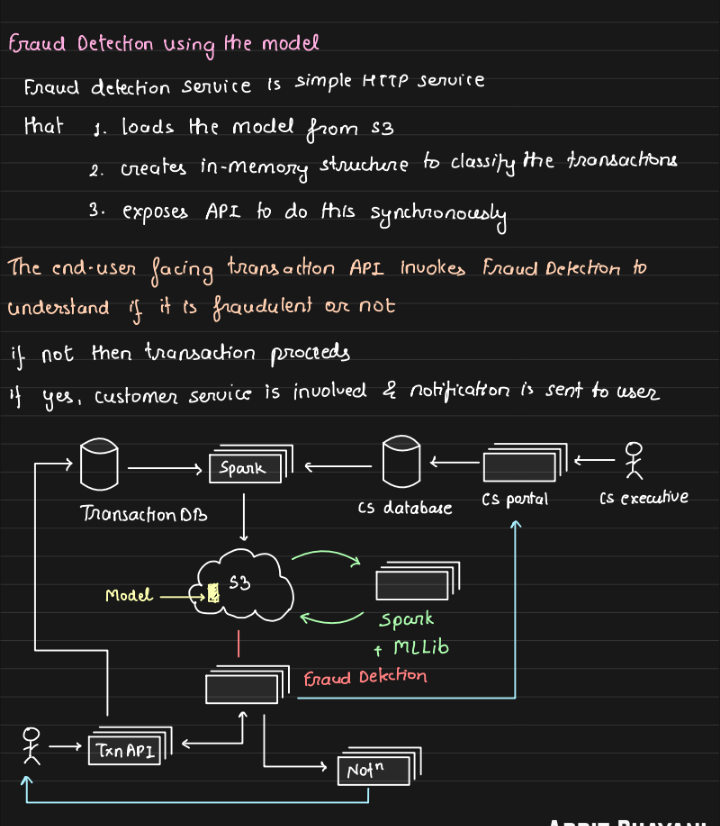 Fraud Detection using the model
Fraud detection service is simple HTTP service
that 1. loads the model from S3
2. creates in-memory structure to classify the transactions
3. exposes API to do this synchronously
The end-user facing transaction API invokes Fraud Detection to
understand if it is fraudulent or not
if not then transaction proceeds
if yes, customer service is involved & notification is sent to user
Spark
Transaction DB
CS database
CS portal
CS executive
S3
Model
Spark
+ MLLib
Fraud Detection
Txn API
Notⁿ